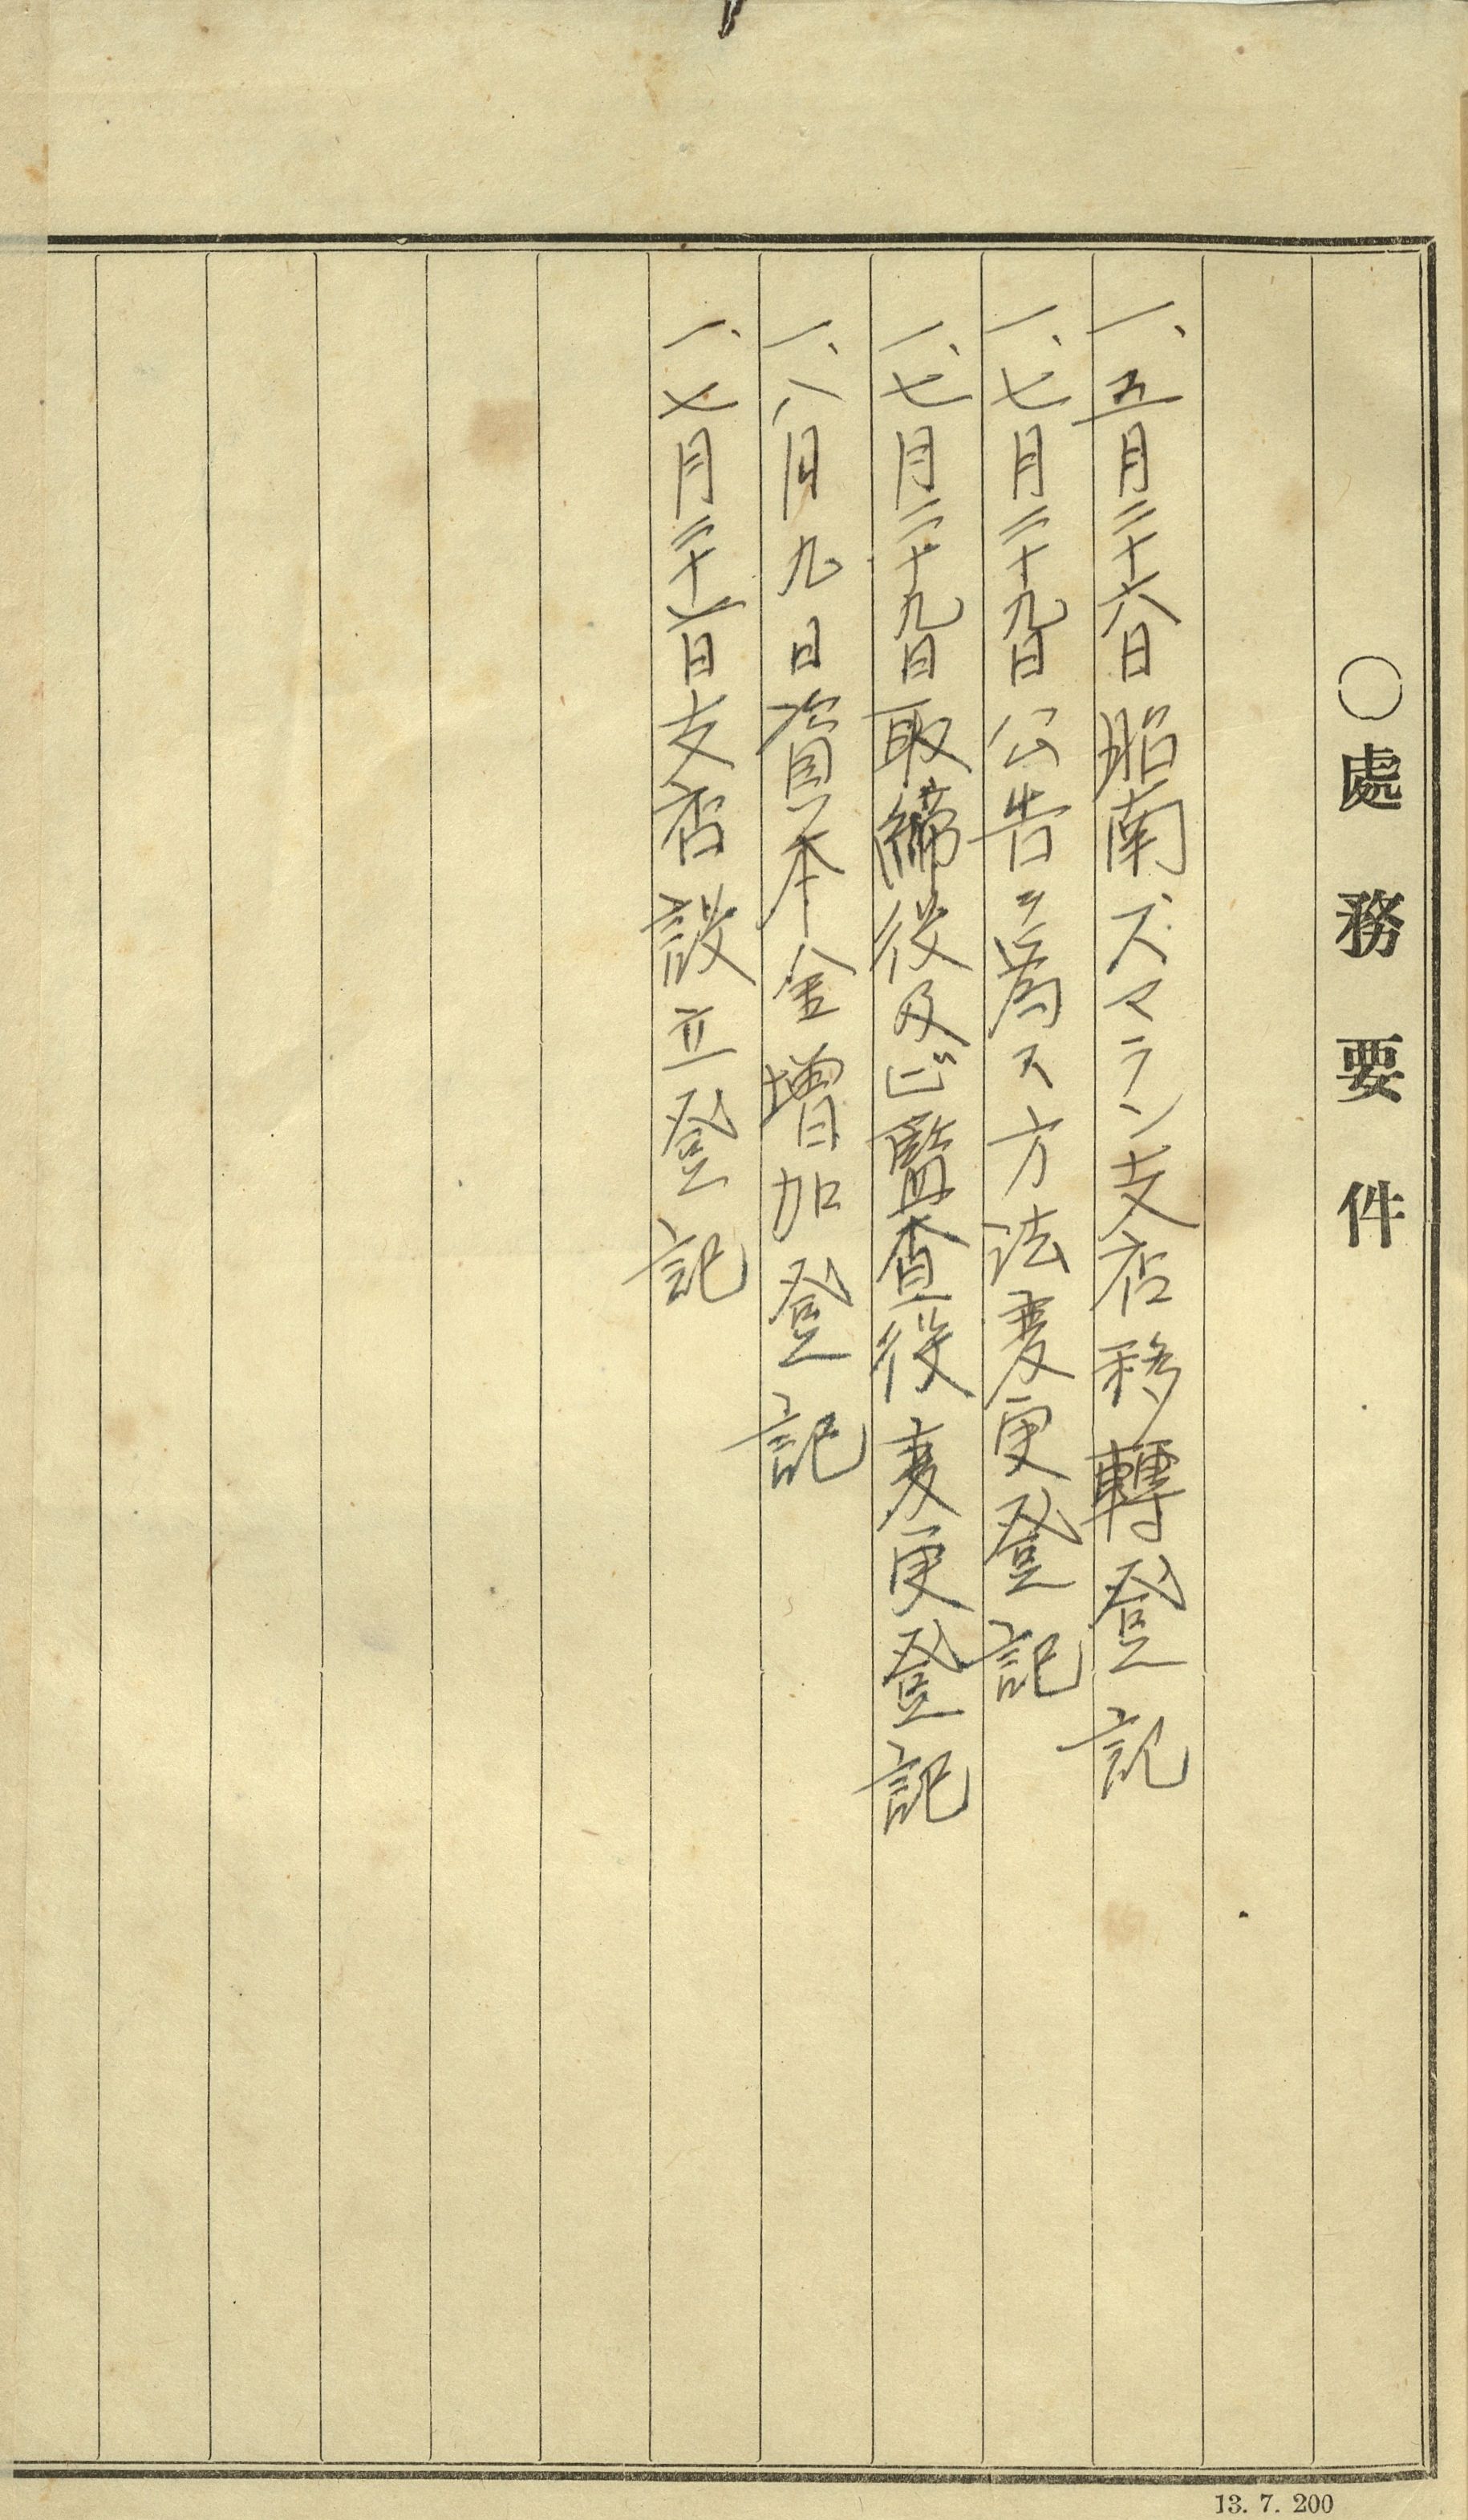 〇處務要件
一、五月二十六日昭南スマラン支店移轉登記
一、七月二十九日公告ヲ爲ス方法変更登記
一、七月二十九日取締役及ビ監査役変更登記
一、八月九日資本金增加登記
一、七月二十一日支店設立登記
13. 7. 200